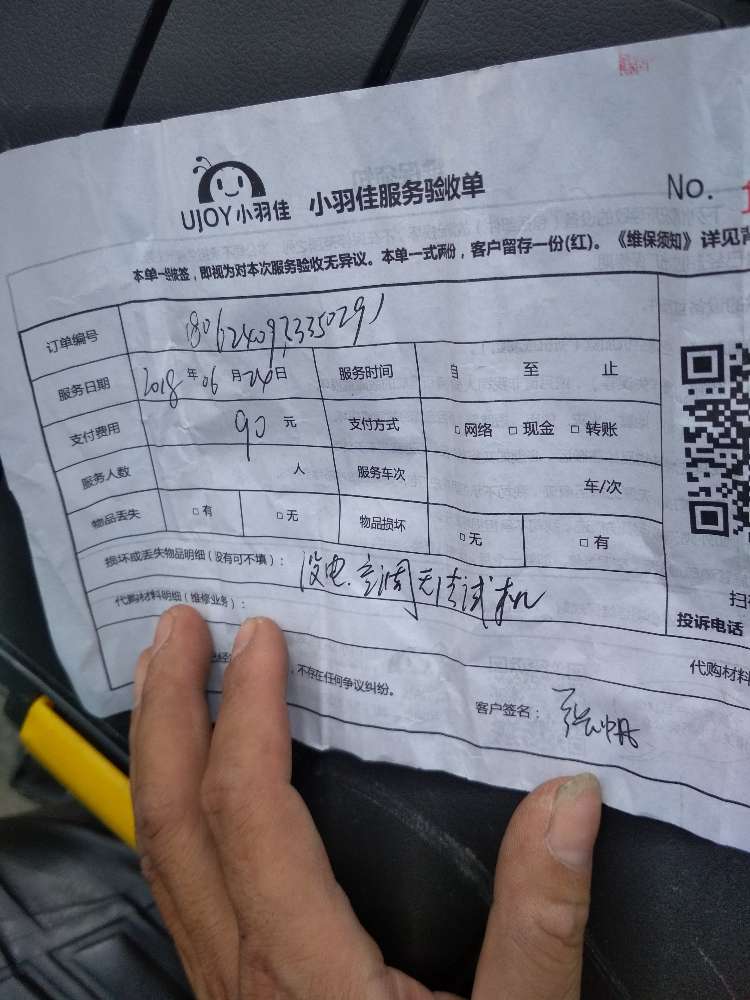 UJOY小羽佳 小羽佳服务验收单 No.
本单一经被签，即视为对本次服务验收无异议。本单一式两份，客户留存一份(红)。《维保须知》详见背
订单编号 1806240973350291
服务日期 2018年06月24日 服务时间 自 至 止
支付费用 90元 支付方式 □网络 □现金 □转账
服务人数 人 服务车次 车/次
物品丢失 □有 □无 物品损坏 □无 □有
损坏或丢失物品明细(没有可不填)： 没电.空调无法试机
扫
代购材料明细(维修业务)：
投诉电话
代购材料
，不存在任何争议纠纷。
客户签名： 张帆